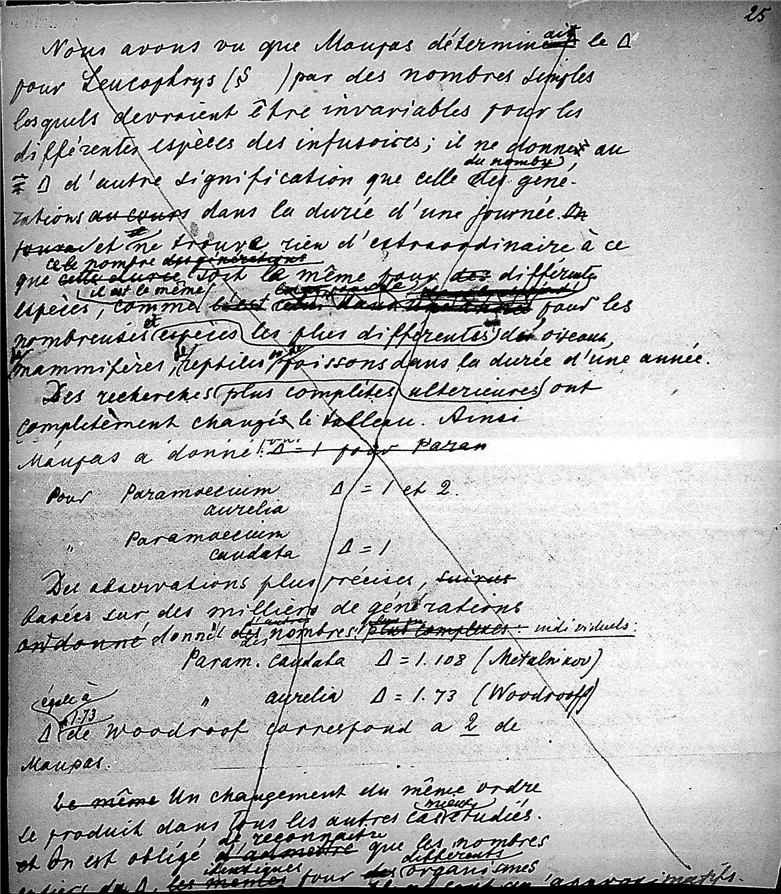 25
Nous avons vu que Maupas déterminait le Δ
pour Leucophrys (§ ) par des nombres simples
lesquels devraient être invariables pour les
différentes espèces des infusoires; il ne donne au
du nombre
Δ d'autre signification que celle des géné-
rations au cours dans la durée d'une journée. On
et ne trouve rien d'extraordinaire à ce
ce le nombre des générations
que cette durée soit la même pour des différentes
il est le même
espèces, comme pour les
nombreuses et espèces les plus différentes des oiseaux,
mammifères, reptiles poissons dans la durée d'une année.
Des recherches plus complètes ulterieures ont
complètement changés le tableau. Ainsi
Maupas a donné: Δ = 1 pour Param
Pour Paramaecium Δ = 1 et 2.
aurelia
" Paramaecium
caudata Δ = 1
Des observations plus précises,
basées sur des milliers de générations
on donné donnet des nombres plus complexes: individuels:
Param. caudata Δ = 1.108 (Metalnikov)
" aurelia Δ = 1.73 (Woodrooff)
égale à
1.73
Δ de Woodroof correspond a 2 de
Maupas.
Le même Un changement du même ordre
mieux
se produit dans tous les autres cas etudiés.
de reconnaitre
et On est obligé d'admettre que les nombres
identiques différents
entiers du Δ les mêmes pour des organismes
approximatifs.